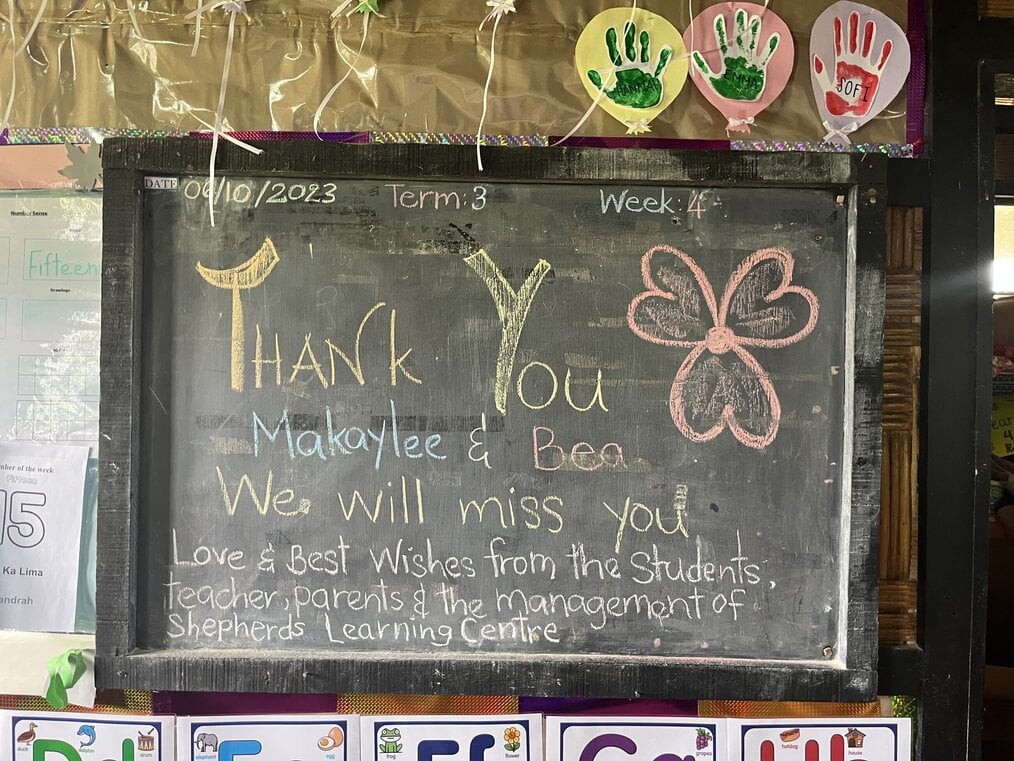 HANNAH
EMMA
SOFI
DATE 06/10/2023 Term: 3 Week: 4
THANK YOU
Makaylee & Bea
We will miss you
Love & Best Wishes from the Students,
teacher, parents & the management of
Shepherds Learning Centre
Number Sense
Fifteen
Drawings
mber of the week
Fifteen
15
Ka Lima
andrah
duck
dolphin
drum
Dd
elephant
egg
Ee
frog
flower
Ff
grapes
Gg
hotdog
house
Hh